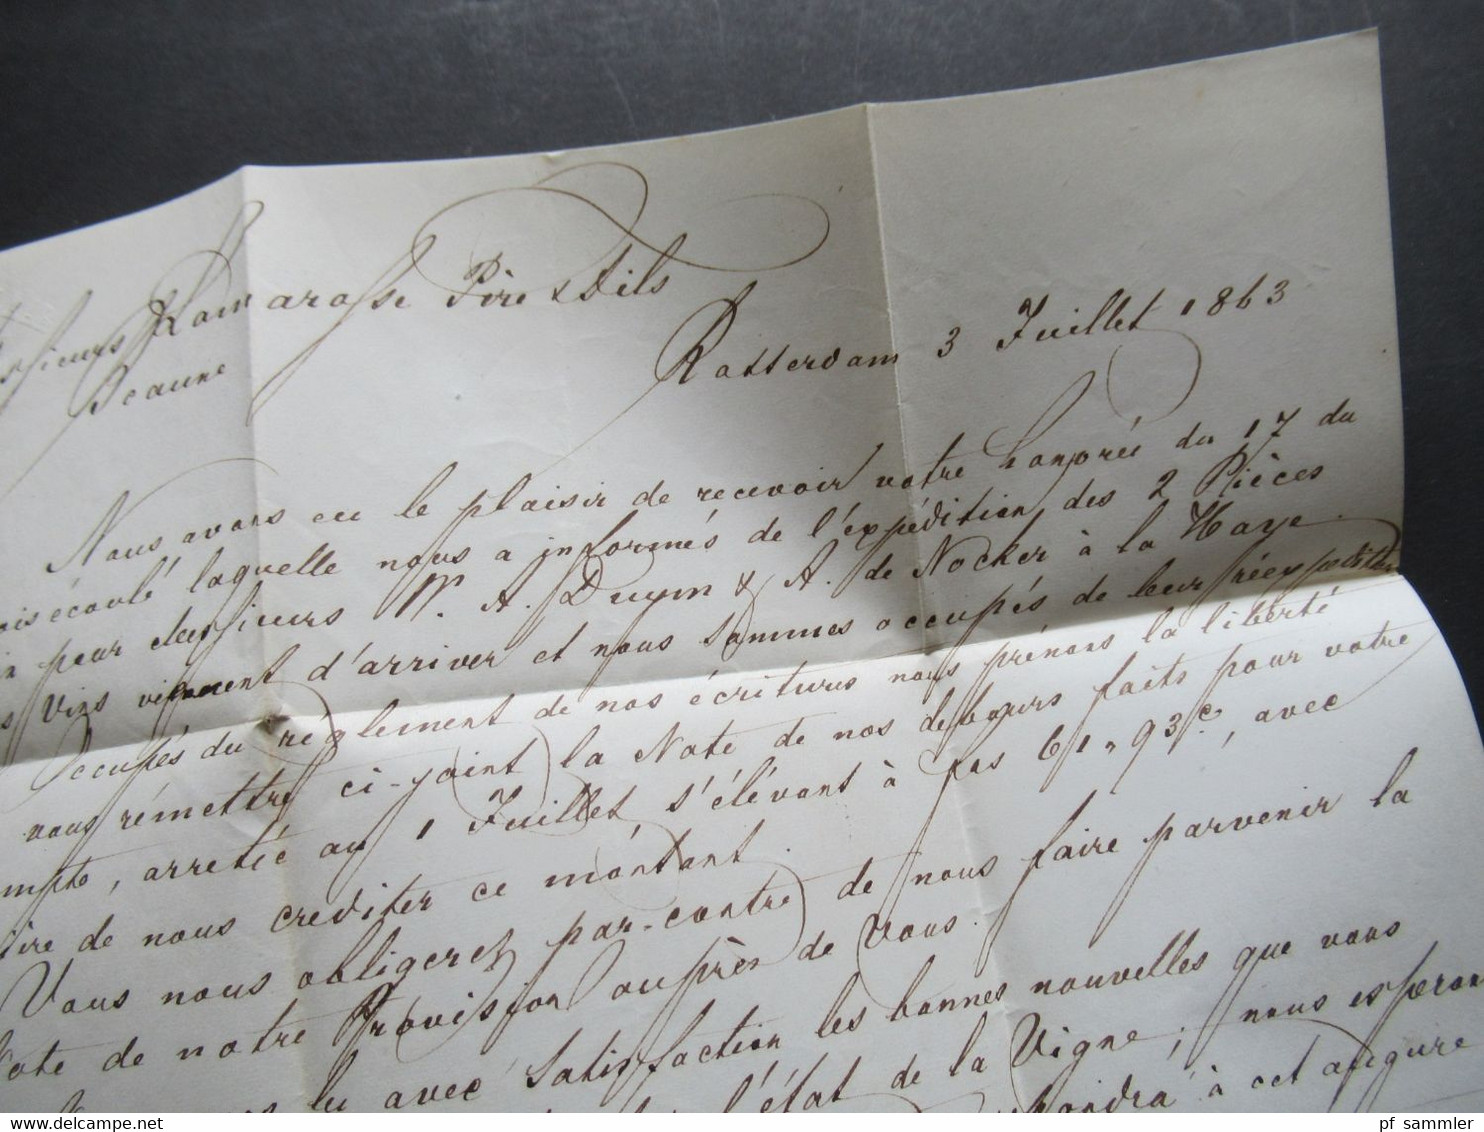 Père & Fils
Beaune
Rotterdam 3 Juillet 1863
Nous avons eu le plaisir de recevoir votre honorée du 17 du
mois écoulé laquelle nous a informés de l'éxpédition des 2 Pièces
vin pour Messieurs W. A. Duym & A. de Nocker à la Haye.
Vins viennent d'arriver et nous sommes occupés de leur réexpédition
Occupés du réglement de nos écritures nous prénons la liberté
vous rémettre ci-joint la Note de nos debours faits pour votre
compte, arretée au 1 Juillet s'élévant à pas 61,93 c., avec
de nous crediter ce montant.
Vous nous obligerez par-contre de nous faire parvenir la
Note de notre Provision auprès de Vous.
lu avec satisfaction les bonnes nouvelles que vous
l'état de la Vigne; nous esperons
à cet augure
www.delcampe.net
pf_sammler